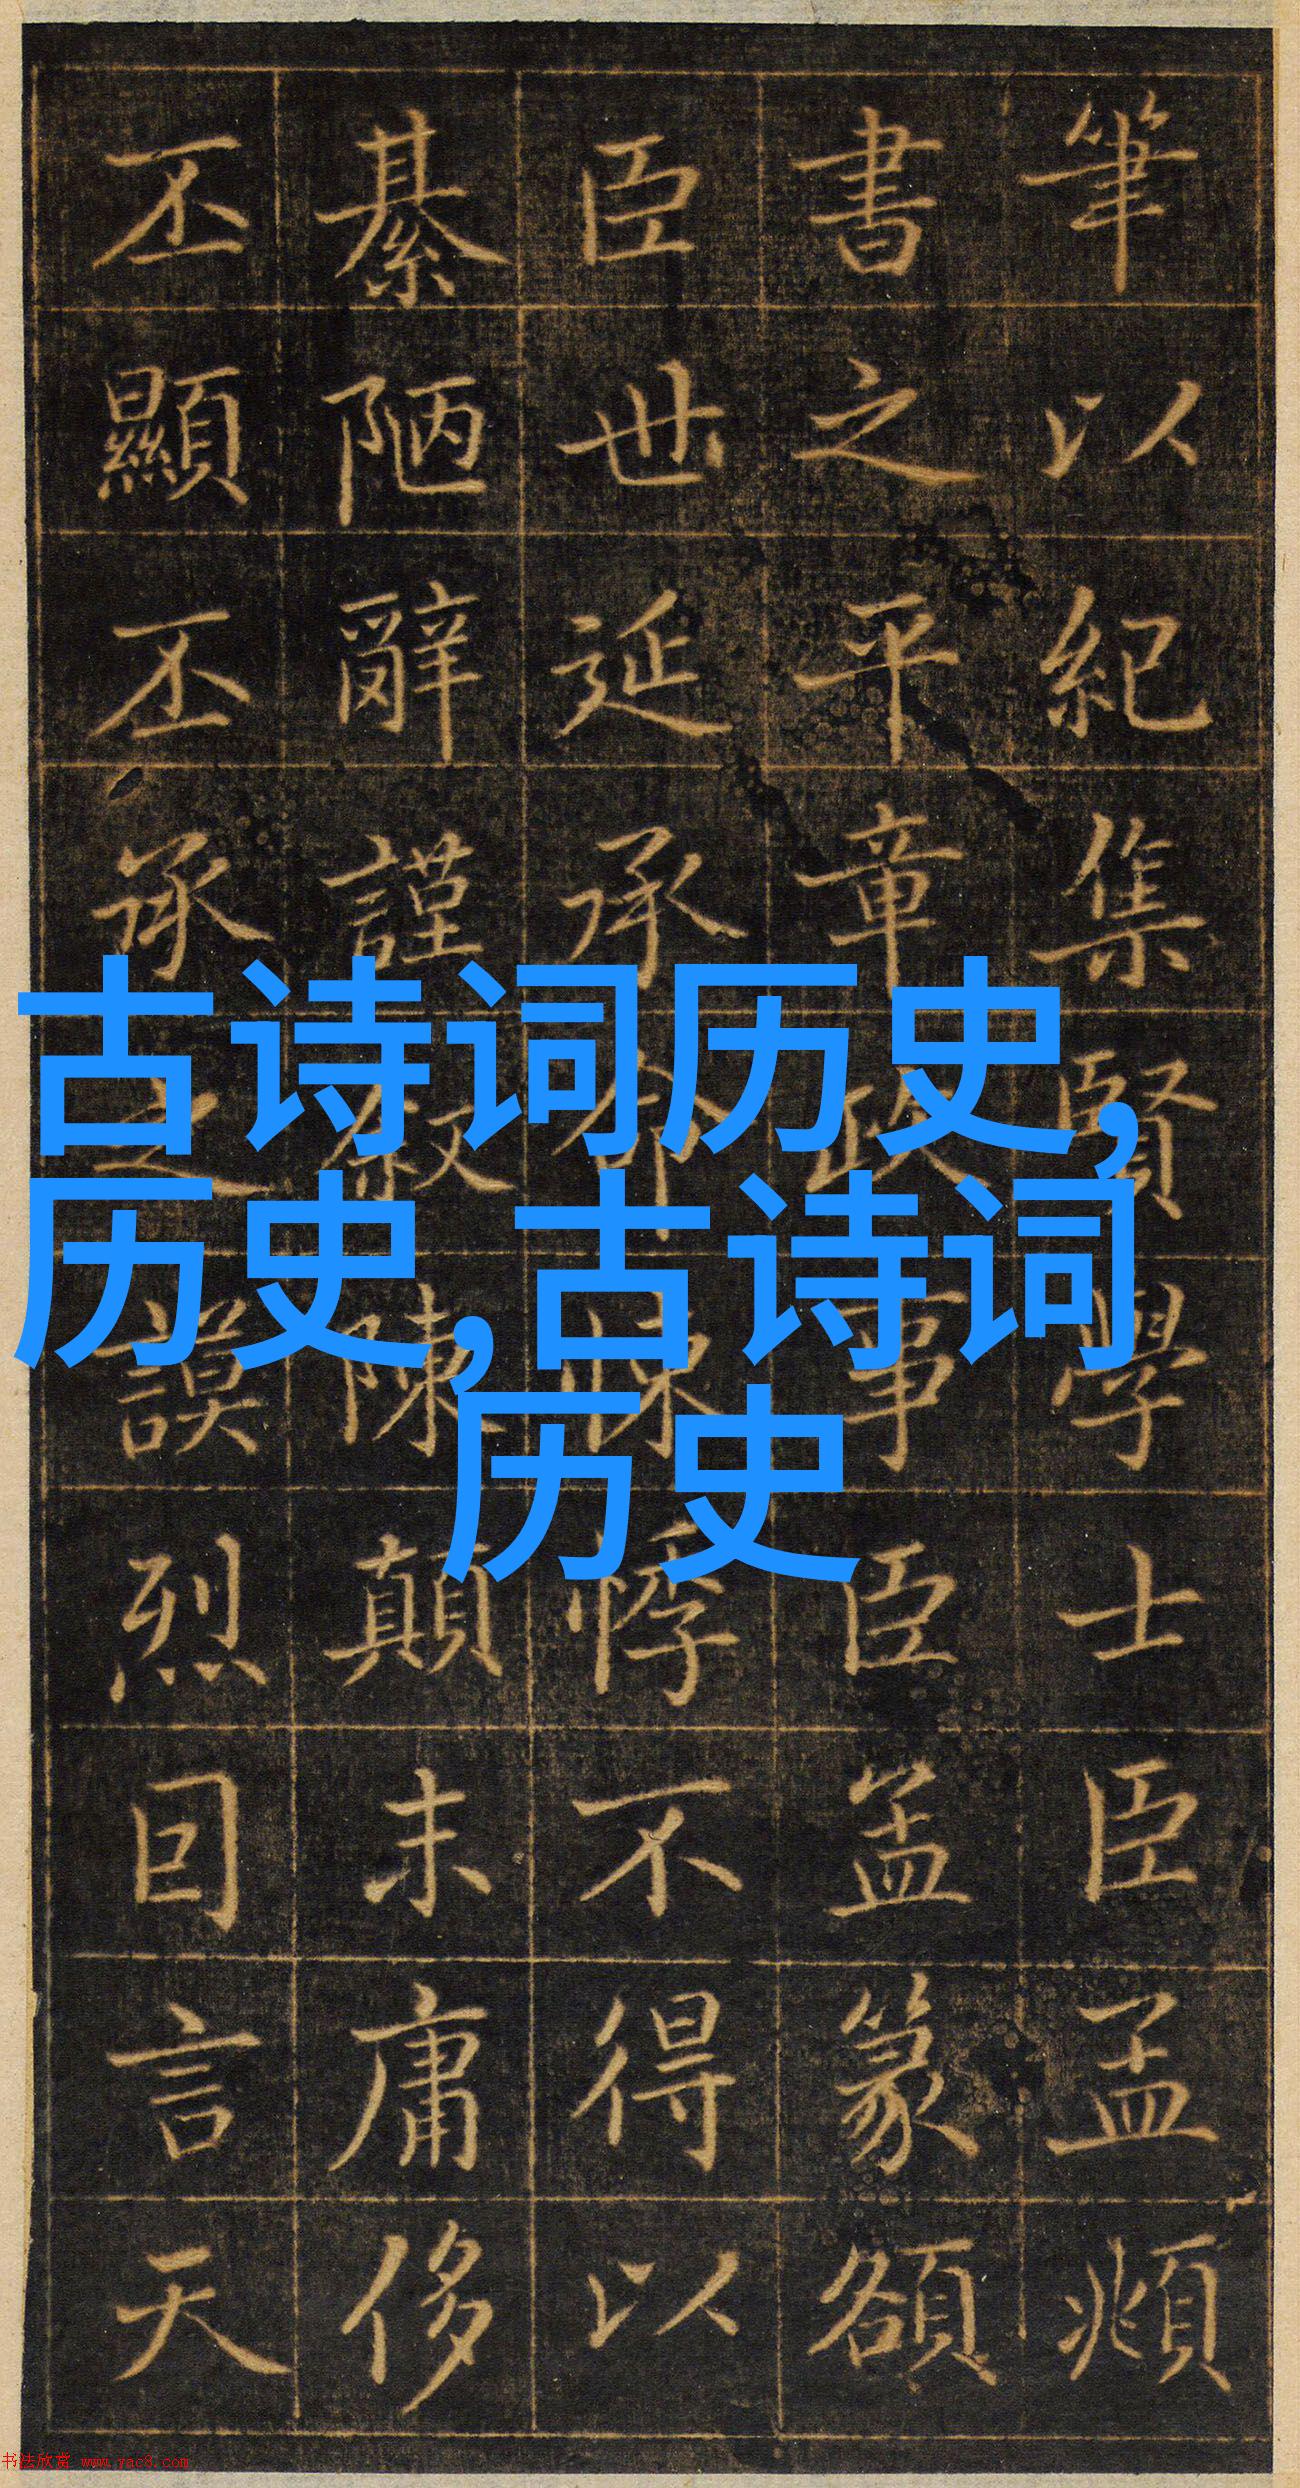 筆以紀集賢學士臣孟頫
書之平章政事臣篆額
臣世延承命悚悸不得以
綦陋辭謹敘陳顛末庸侈
丕顯丕承之謨烈囙言天
古诗词历史,
历史,古诗词
历史
书法欣赏 www.yac8.com